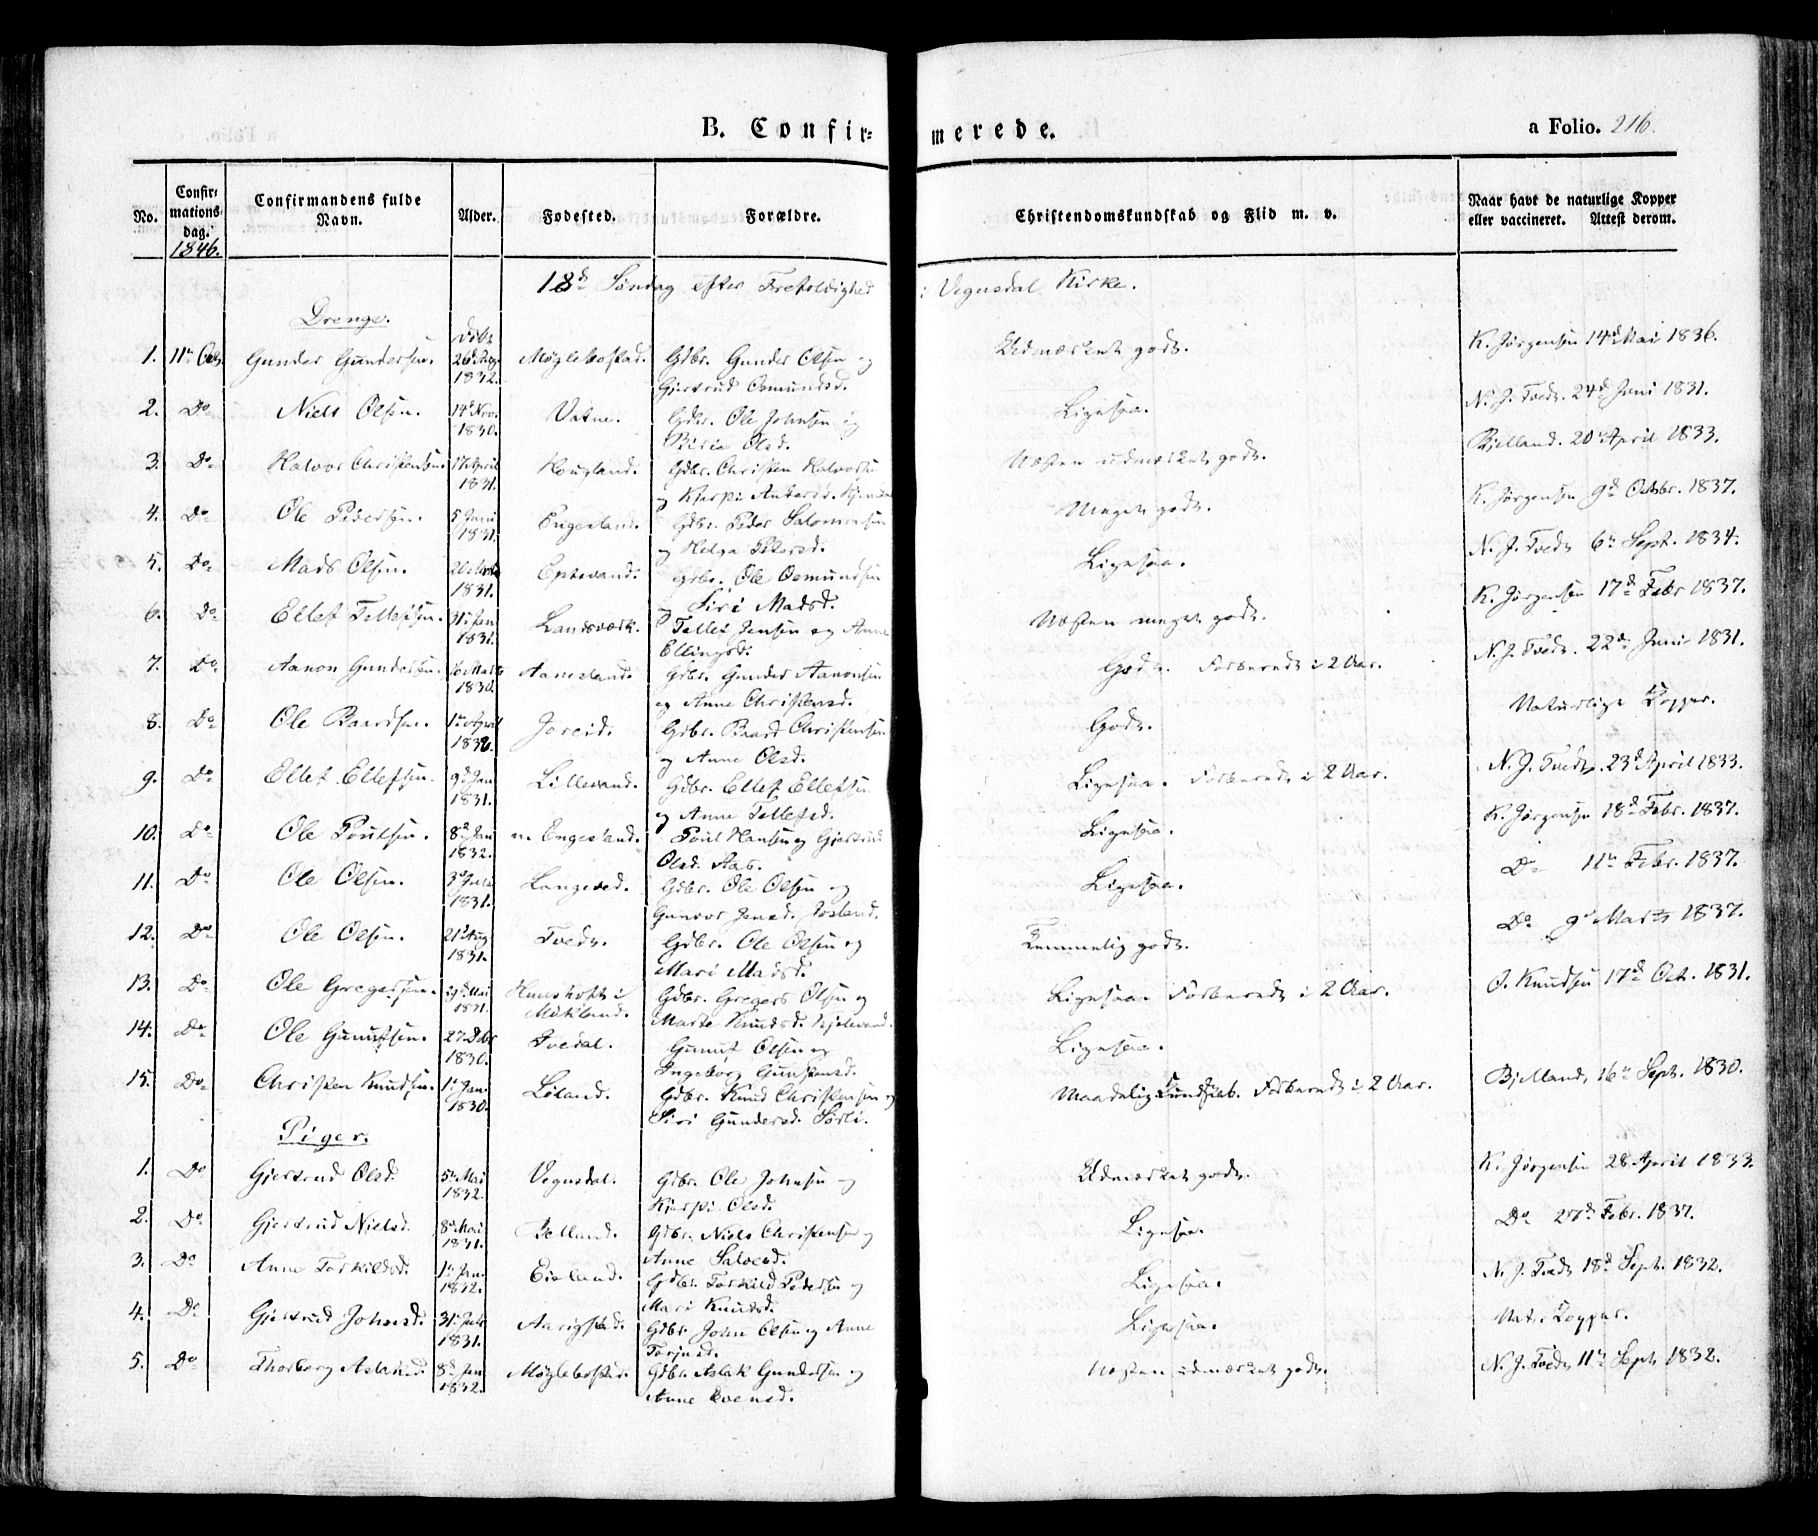 B. Confir- merede.
a Folio. 216.
No. Confirmations dag. Confirmandens fulde Navn. Alder. Fødested. Forældre. Christendomskundskab og Flid m. v. Naar havt de naturlige Kopper eller vaccineret. Attest derom.
1846.
18d Søndag efter Trefoldighed i Vegusdal Kirke.
Drenge.
1. 11te Octr. Gunder Gundersen. 1832. Møglebostad. Gdbr. Gunder Olsen og Gjertrud Osmundsd. Udmærket godt. K. Jørgensen 14d Mai 1836.
2. Do Niels Olsen. 14d Nov. 1830. Vatne. Gdbr. Ole Johnsen og Olsd. Ligesaa. N. J. Tvedt. 24d Juni 1831.
3. Do Halvor Christensen. 17 April 1831. Hougland. Gdbr. Christen Halvorsen og Andersd. Næsten udmærket godt. Bjelland. 20de April 1833.
4. Do Ole Pedersen. 5 Juni 1831. Engesland. Gdbr. Peder Salomonsen og Helga Pedersd. Meget godt. K. Jørgensen 9d Octbr. 1837.
5. Do Mads Olsen. 1831. Eptevand. Gdbr. Ole Osmundsen og Siri Madsd. Ligesaa. N. J. Tvedt 6te Sept. 1834.
6. Do Ellef Tellefsen. 31te Jan 1831. Landsværk. Tellef Jensen og Anne Ellingsd. Næsten meget godt. K. Jørgensen 17d Febr 1837.
7. Do Aanon Gundersen. 1830. Aanesland. Gdbr. Gunder Aanonsen og Anne Christensd. Godt. Forberedt i 2 Aar. N. J. Tvedt. 22de Juni 1831.
8. Do Ole Baardsen. 1te April Joreid. Gdbr. Baard Christensen og Anne Olsd. Godt. Naturlige Kopper.
9. Do Ellef Ellefsen. 9d Jan 1831. Lillevand. Gdbr. Ellef Ellefsen og Anne Tellefsd. Ligesaa. Forberedt i 2 Aar. N. J. Tvedt. 23d April 1833.
10. Do Ole Poulsen. 8d Jan 1832. n. Engesland. Poul Hansen og Gjertrud Olsd. Aas. Ligesaa. K. Jørgensen 18d Febr. 1837.
11. Do Ole Olsen. 3d Juli 1831. Langeved. Gdbr. Ole Olsen og Gunvor Jensd. Ligesaa. Do 11te Febr. 1837.
12. Do Ole Olsen. 21d Aug 1831. Tvedt. Gdbr. Ole Olsen og Mari Madsd. Temmelig godt. Do 9d Marts 1837.
13. Do Ole Gregersen. 29d Mai 1831. i Mökland. Gdbr. Gregers Olsen og Marte Knudsd. Ligesaa. Forberedt i 2 Aar. O. Knudsen 17d Oct. 1831.
14. Do Ole Gunufsen. 27 Dcbr 1830. Tvedal. Gunuf Olsen og Ingeborg Gunstensd. Ligesaa.
15. Do Christen Knudsen. 1te Jan. 1830. Løland. Gdbr. Knud Christensen og Siri Gundersd. Sørli. Maadelig Kundskab. Forberedt i 2 Aar. Bjelland, 16te Sept. 1830.
Piger.
1. Do Gjertrud Olsd. 5te Mai 1832. Vegusdal. Gdbr. Ole Johnsen og Olsd. Udmærket godt. K. Jørgensen 28 April 1833.
2. Do Gjertrud Nielsd. 8d Mai 1831. Gdbr. Niels Christensen og Anne Salvesd. Ligesaa. Do 27d Febr. 1837.
3. Do Anne Torkildsd. 1te Jan. 1832. Eieland. Gdbr. Torkild Pedersen og Mari Knudsd. Ligesaa. N. J. Tvedt 18d Sept. 1832.
4. Do Gjertrud Johnsd. 31te Juli 1831. Aarigstad. Gdbr. John Olsen og Anne Terjesd. Ligesaa. Nat. Kopper.
5. Do Thorborg Aslaksd. 8d Jan 1832. Møglebostad. Gdbr. Aslak Gundersen og Anne Evensd. Næsten udmærket godt. N. J. Tvedt 11te Sept 1832.